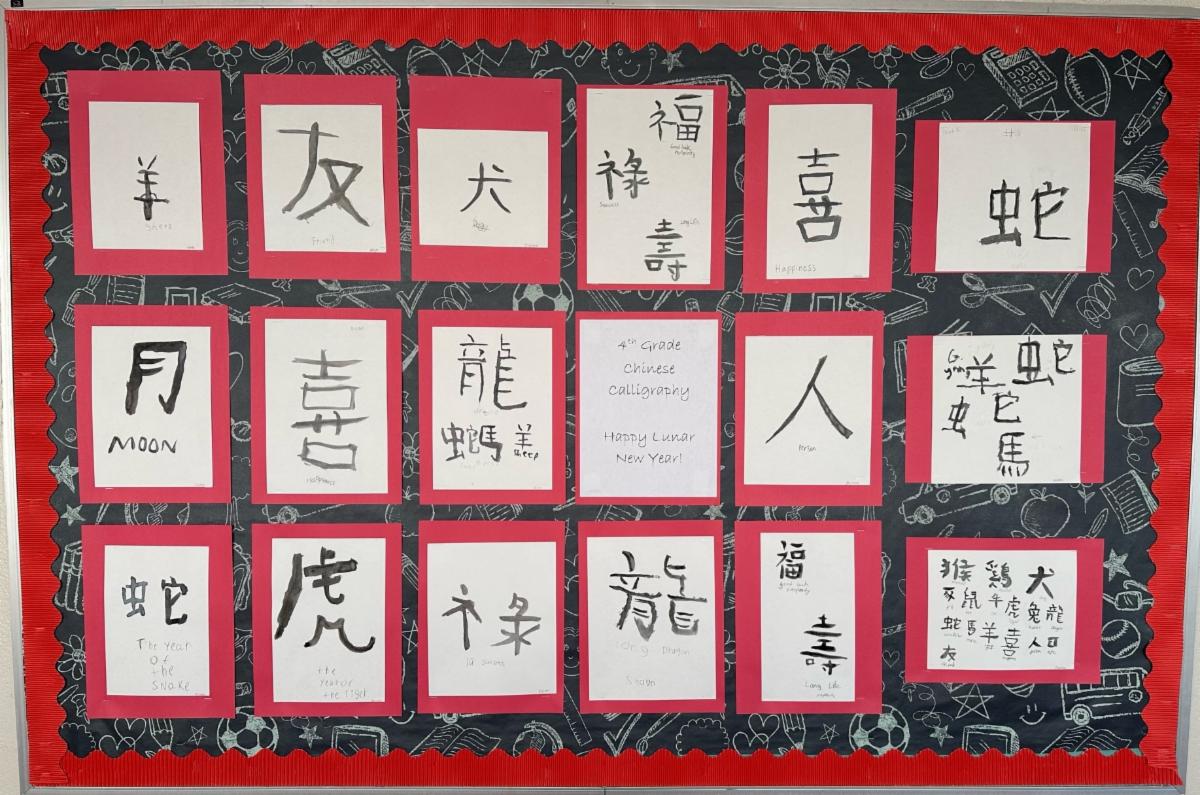 羊
Sheep
友
Friend
犬
福
祿
Success
壽
Long Life
喜
Happiness
蛇
月
MOON
喜
Happiness
龍
蛇馬 羊
Sheep
4th Grade
Chinese
Calligraphy
Happy Lunar
New Year!
人
Person
羊 蛇
蛇
馬
蛇
The Year
of
the
Snake
虎
the
Year of
the Tiger
祿
龍
Dragon
福
壽
Long Life
猴 鷄 犬
豕 鼠 牛 虎 兔 龍
蛇 馬 羊 喜 人
友